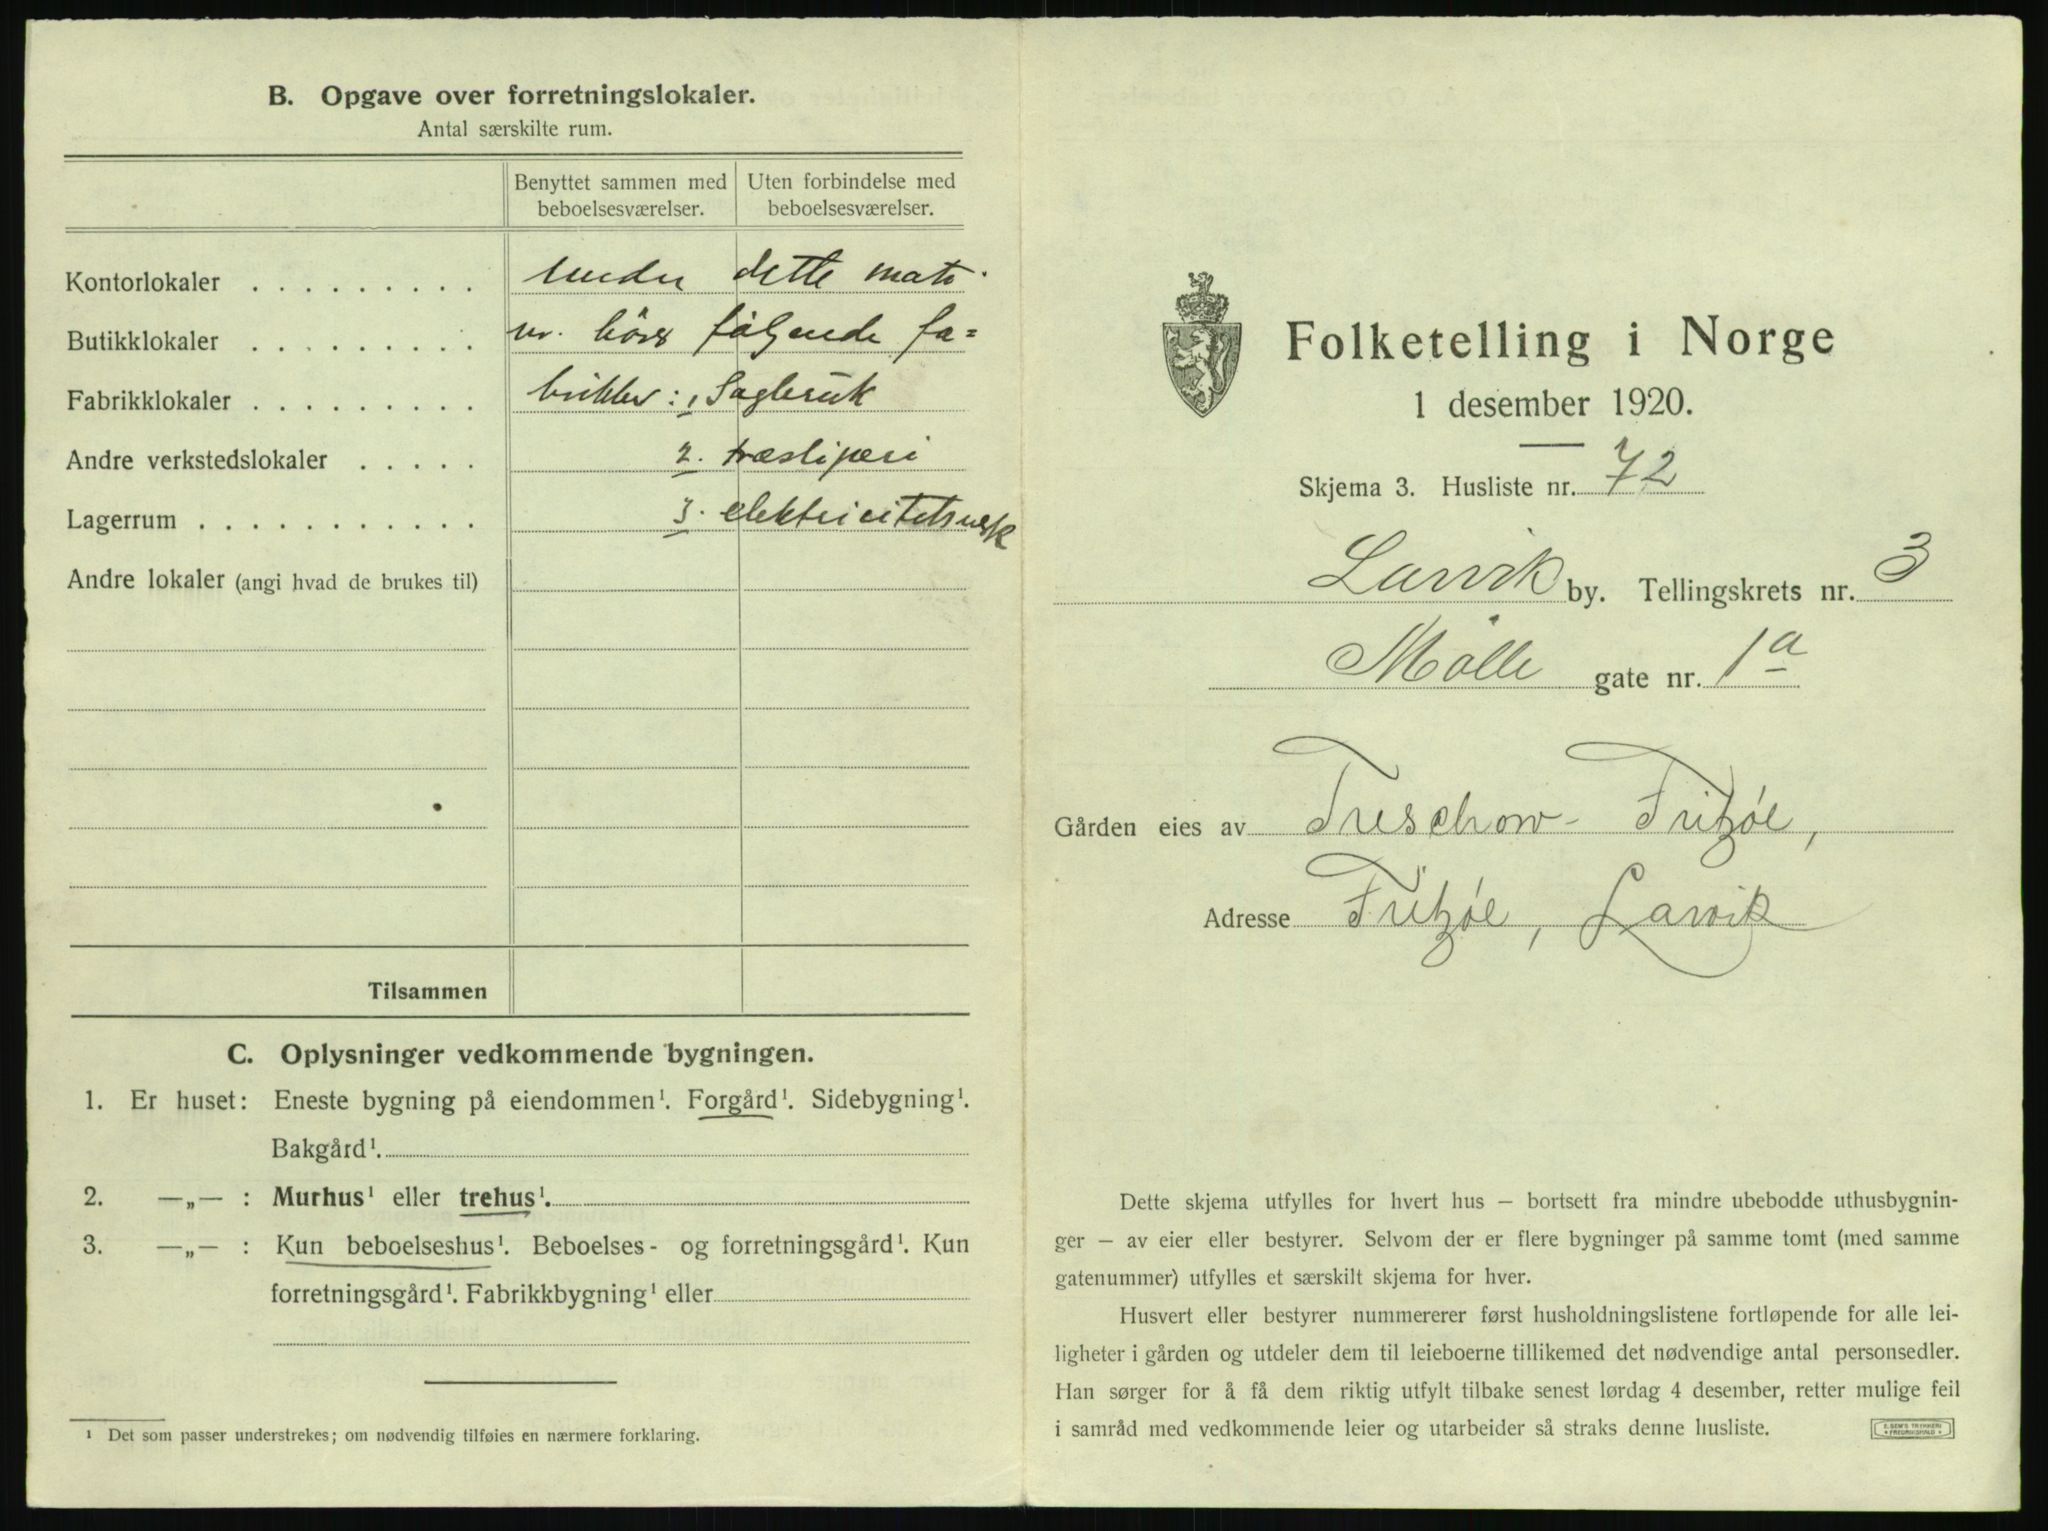 B. Opgave over forretningslokaler.
Antal særskilte rum.
Benyttet sammen med beboelsesværelser.
Uten forbindelse med beboelsesværelser.
Kontorlokaler . . . . . . . . . under dette matr.
Butikklokaler . . . . . . . . . nr. hører følgende fa=
Fabrikklokaler . . . . . . . . . brikker: 1 Sagbruk
Andre verkstedslokaler . . . . . 2. træsliperi
Lagerrum . . . . . . . . . . . 3. elektricitetsverk
Andre lokaler (angi hvad de brukes til)
Tilsammen
C. Oplysninger vedkommende bygningen.
1. Er huset: Eneste bygning på eiendommen¹. Forgård¹. Sidebygning¹.
Bakgård¹.
2. —„— : Murhus¹ eller trehus¹.
3. —„— : Kun beboelseshus¹. Beboelses- og forretningsgård¹. Kun
forretningsgård¹. Fabrikkbygning¹ eller
¹ Det som passer understrekes; om nødvendig tilføies en nærmere forklaring.
Folketelling i Norge
1 desember 1920.
Skjema 3. Husliste nr. 72
Larvik by. Tellingskrets nr. 3
Mølle gate nr. 1a
Gården eies av Treschow-Fritzøe,
Adresse Fritzøe, Larvik
Dette skjema utfylles for hvert hus – bortsett fra mindre ubebodde uthusbygnin-
ger – av eier eller bestyrer. Selvom der er flere bygninger på samme tomt (med samme
gatenummer) utfylles et særskilt skjema for hver.
Husvert eller bestyrer nummererer først husholdningslistene fortløpende for alle lei-
ligheter i gården og utdeler dem til leieboerne tillikemed det nødvendige antal personsedler.
Han sørger for å få dem riktig utfylt tilbake senest lørdag 4 desember, retter mulige feil
i samråd med vedkommende leier og utarbeider så straks denne husliste.
E. SEM'S TRYKKERI
FREDRIKSHALD